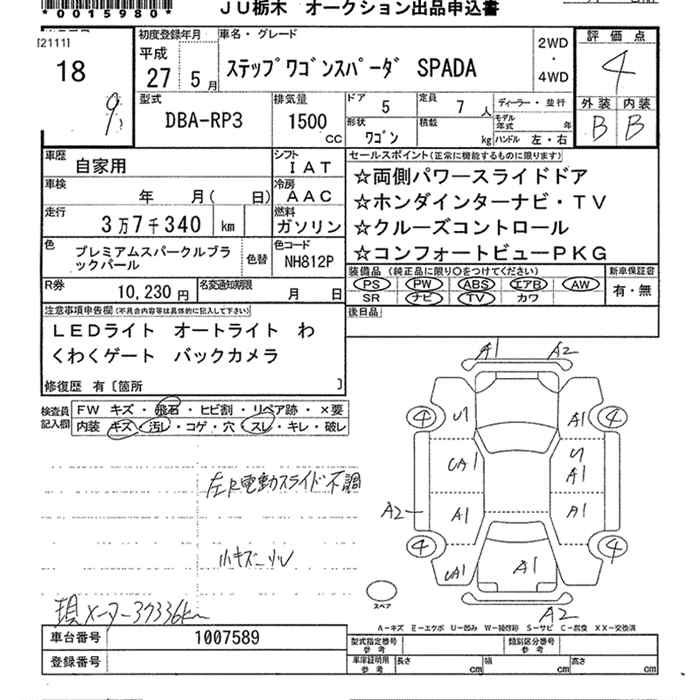 *0015980*
JU栃木 オークション出品申込書
[21111]
18
初度登録年月
平成
27 5月
車名・グレード
ステップワゴンスパーダ SPADA
2WD
・
4WD
評価点
4
外装 内装
B B
型式
DBA-RP3
排気量
1500
CC
ドア 5
定員 7人
ディーラー・並行
形状
ワゴン
積載
kg
モデル年式 年
ハンドル 左・右
車歴
自家用
シフト
IAT
車検
年 月( 日)
冷房
AAC
走行
3万7千340 km
燃料
ガソリン
色
プレミアムスパークルブラックパール
色替
色コード
NH812P
R券
10,230円
名変通知期限
月 日
セールスポイント(正常に機能するものに限ります)
☆両側パワースライドドア
☆ホンダインターナビ・TV
☆クルーズコントロール
☆コンフォートビューPKG
装備品(純正品に限り○をつけてください)
PS PW ABS エアB AW
SR ナビ TV カワ
新車保証書
有・無
後日品
注意事項申告欄(不具合内容等は具体的に記入して下さい)
LEDライト オートライト わ
くわくゲート バックカメラ
修復歴 有〔箇所 〕
検査員
記入欄
FW キズ・飛石・ヒビ割・リペア跡・×要
内装 キズ・汚レ・コゲ・穴・スレ・キレ・破レ
電動スライド不調
小キズ
現メーター37336km
A1 A2
4 4
A1
UA1
A1
A2 A1 A1
4 4
UA1 A1
A2
スペア
A-キズ E-エクボ U-凹み W-補修跡 S-サビ C-腐食 XX-交換済
車台番号 1007589
登録番号
型式指定番号
参考
類別区分番号
参考
車庫証明用
参考
長さ cm 幅 cm 高さ cm